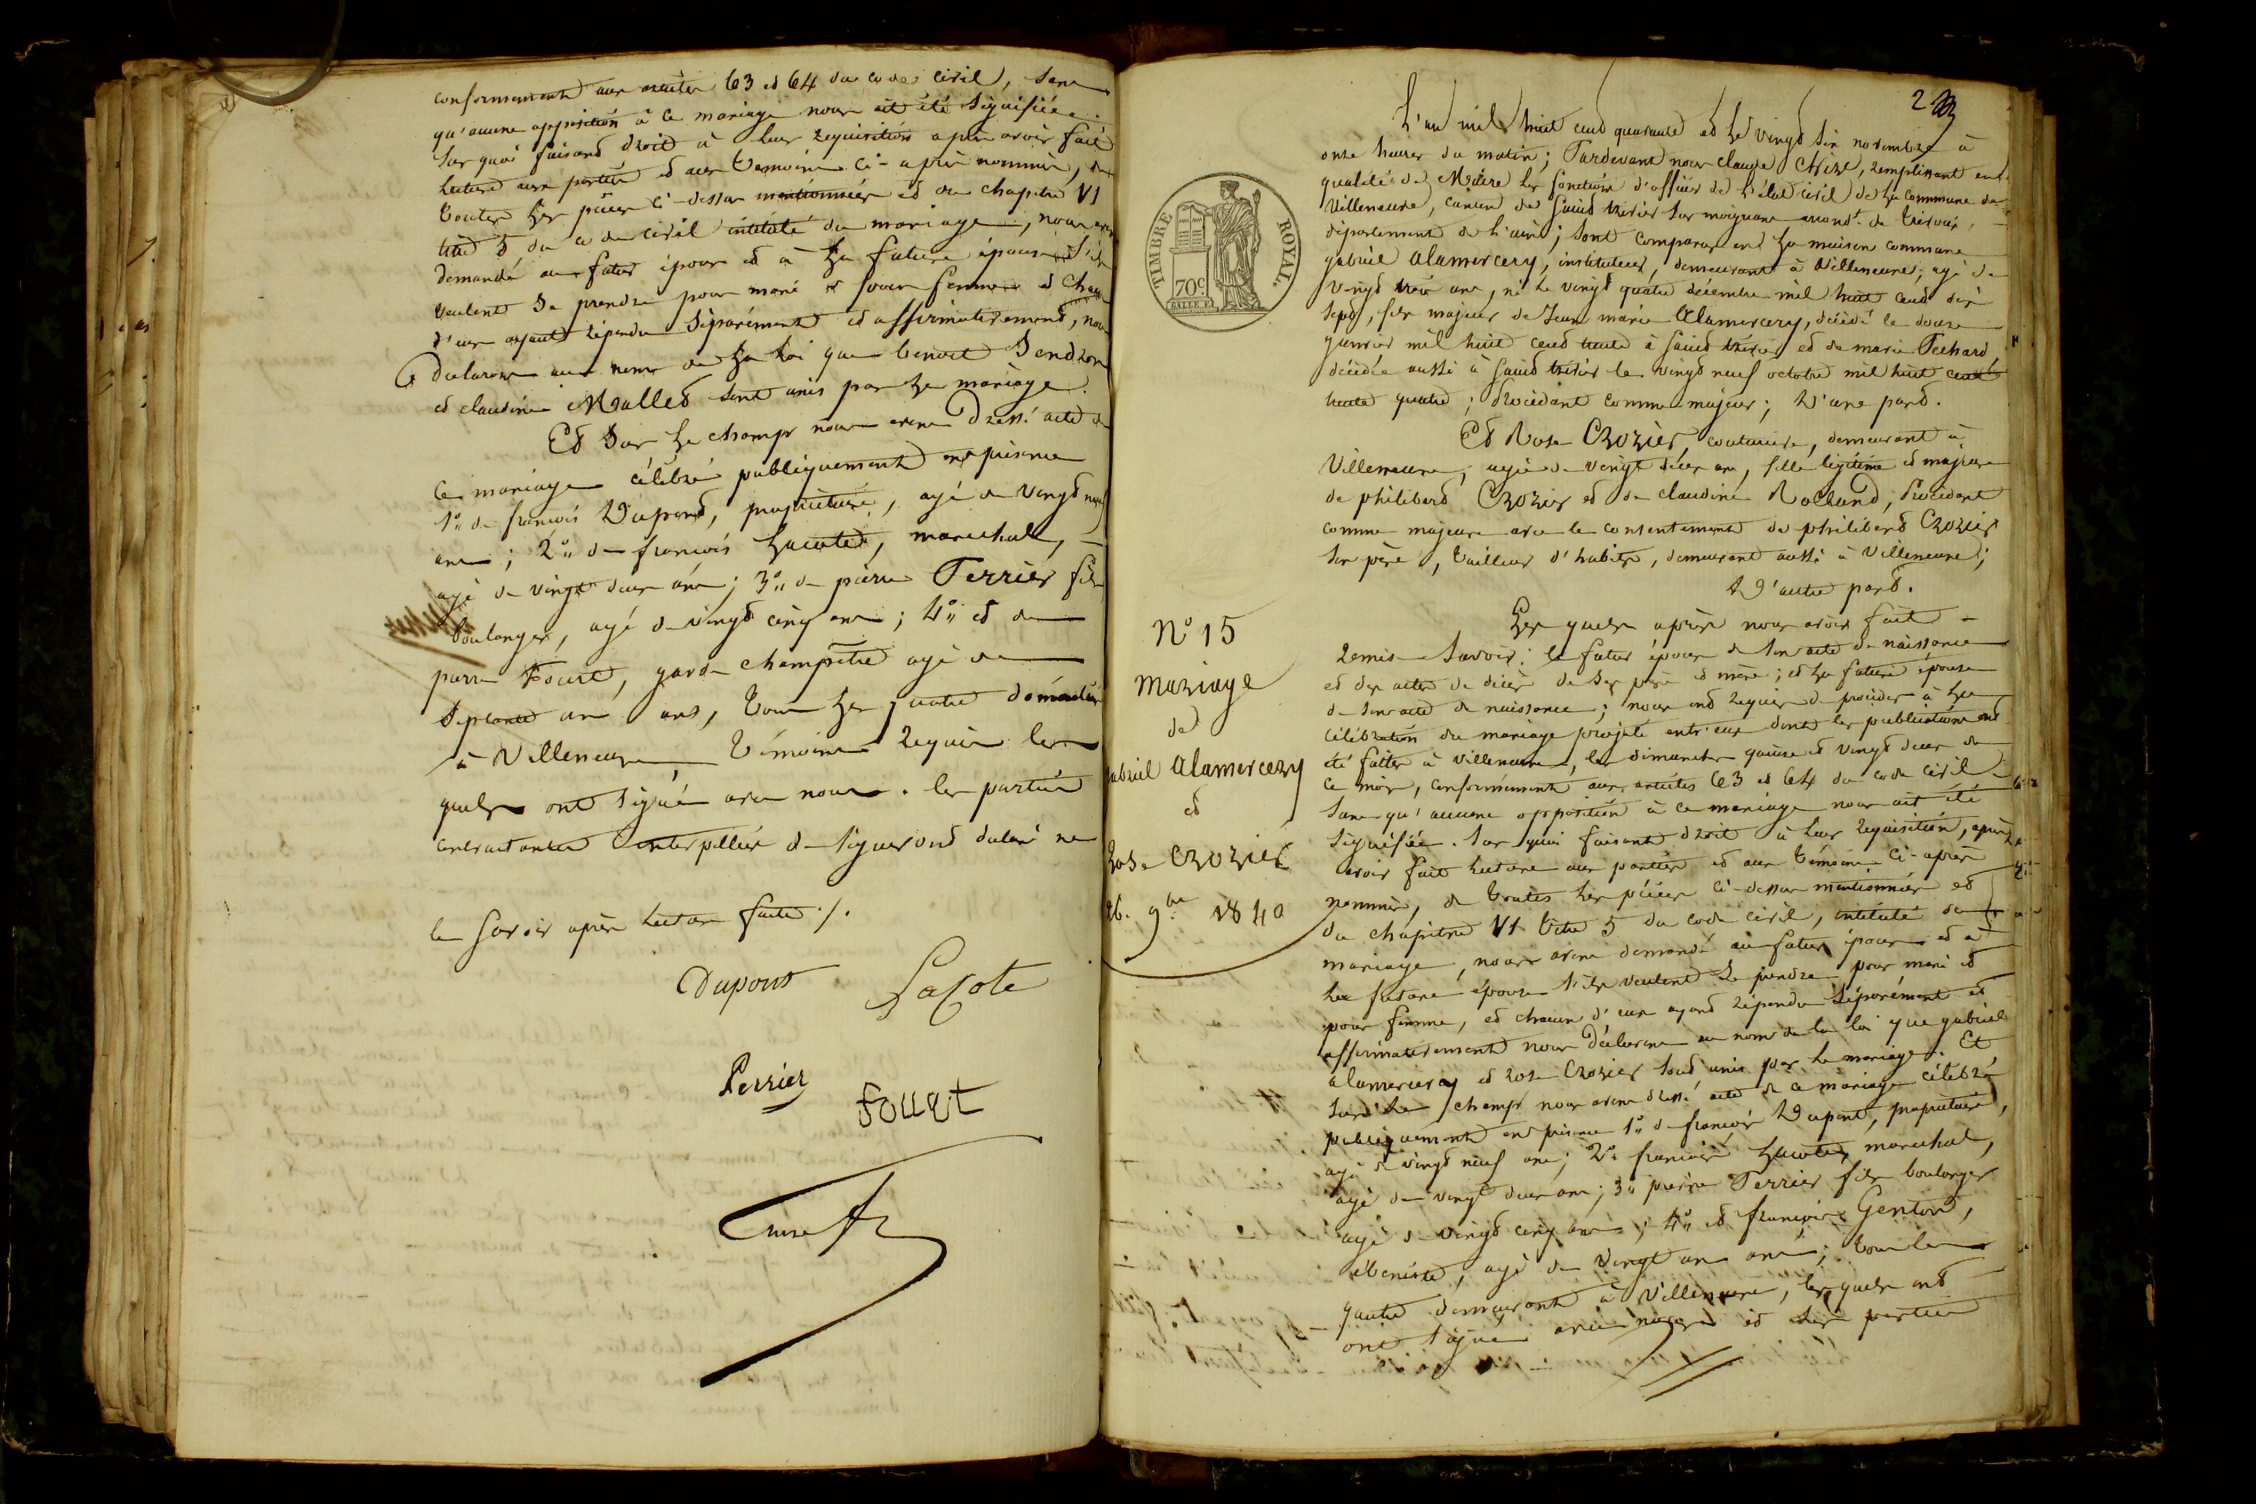 conformément aux articles 63 et 64 du code civil, sans
qu'aucune opposition à ce mariage nous ait été signifiée.
Sur quoi faisant droit à leur requisition après avoir fait
lecture aux parties et aux témoins ci-après nommés, de
toutes les pièces ci-dessus mentionnées et du chapitre VI
titre 5 du code civil intitulé du mariage, nous avons
demandé au futur époux et à la future épouse s'ils
veulent se prendre pour mari et pour femme et chacun
d'eux ayant répondu séparément et affirmativement, nous
déclarons au nom de la loi que benoit Gendron
et claudine Mallet sont unis par le mariage.
Et Sur le champs nous avons dressé acte de
ce mariage célébré publiquement en présence
1° de françois Dupond, propriétaire, agé de vingt neuf
ans; 2° de françois Lacote, marechal,
agé de vingt deux ans; 3° de pierre Perrier fils
boulanger, agé de vingt cinq ans; 4° et de
pierre Fouet, garde champêtre agé de
soixante un ans, tous les quatre domiciliés
à Villeneuve témoins requis les
quels ont signé avec nous. les parties
contractantes interpellées de signer ont déclaré ne
le savoir après lecture faite ./.
Dupont Lacote
Perrier
Fouet
2
TIMBRE ROYAL
70c
L'an mil huit cent quarante et le vingt six novembre à
onze heures du matin; Pardevant nous claude Crize, remplissant en
qualité de Maire les fonctions d'officier de l'état civil de la commune de
Villeneuve, canton de saint trivier sur moignans arrondt. de trévoux,
département de l'ain; sont comparus en la maison commune
gabriel alamercery, instituteur, demeurant à Villeneuve; agé de
vingt trois ans, né le vingt quatre décembre mil huit cent dix
sept, fils majeur de Jean marie Alamercery, décédé le douze
janvier mil huit cent trente à saint trivier et de marie Pechard,
décédée aussi à saint trivier le vingt neuf octobre mil huit cent
trente quatre; Procédant comme majeur; D'une part.
Et Rose Crozier couturière, demeurant à
Villeneuve, agée de vingt deux ans, fille légitime et majeure
de philibert Crozier et de claudine Rolland, Procédant
comme majeure avec le consentement de philibert Crozier
son père, tailleur d'habits, demeurant aussi à Villeneuve;
D'autre part.
Les quels après nous avoir fait
remise Savoir: le futur époux de son acte de naissance
et des actes de décès de ses père et mère; et la future épouse
de son acte de naissance; nous ont requis de procéder à la
célébration du mariage projeté entr'eux dont les publications ont
été faites à villeneuve, les dimanches quinze et vingt deux de
ce mois, conformément aux articles 63 et 64 du code civil
sans qu'aucune opposition à ce mariage nous ait été
signifiée. Sur quoi faisant droit à leur requisition, après
avoir fait lecture aux parties et aux témoins ci-après
nommés, de toutes les pièces ci-dessus mentionnées et
du chapitre VI titre 5 du code civil, intitulé du
mariage, nous avons demandé au futur époux et à
la future épouse s'ils veulent se prendre pour mari et
pour femme, et chacun d'eux ayant répondu séparément et
affirmativement nous déclarons au nom de la loi que gabriel
alamercery et rose Crozier sont unis par le mariage. Et
sur le champs nous avons dressé acte de ce mariage célébré
publiquement en présence 1° de françois Dupont, propriétaire,
agé de vingt neuf ans; 2° françois Lacote, marechal,
agé de vingt deux ans; 3° pierre Perrier fils boulanger
agé de vingt cinq ans; 4° et françois Genton,
ébeniste, agé de vingt un ans; tous les
quatre demeurant à Villeneuve, les quels ont
ont signé avec nous et les parties
N° 15
Mariage
de
gabriel alamercery
et
Rose Crozier
26. 9bre 1840